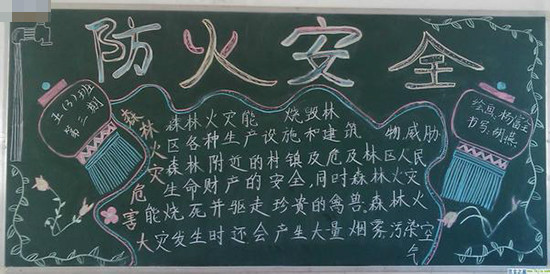 防火安全
五(3)班
第二期
森林火灾危害
森林火灾能 烧毁林
区各种生产设施和建筑 物威胁
森林附近的村镇及危及林区人民
生命财产的安全,同时森林火灾
能烧死并驱走珍贵的禽兽.森林火
大灾发生时还会产生大量烟雾,污染空
气
绘画:杨
书写:胡燕